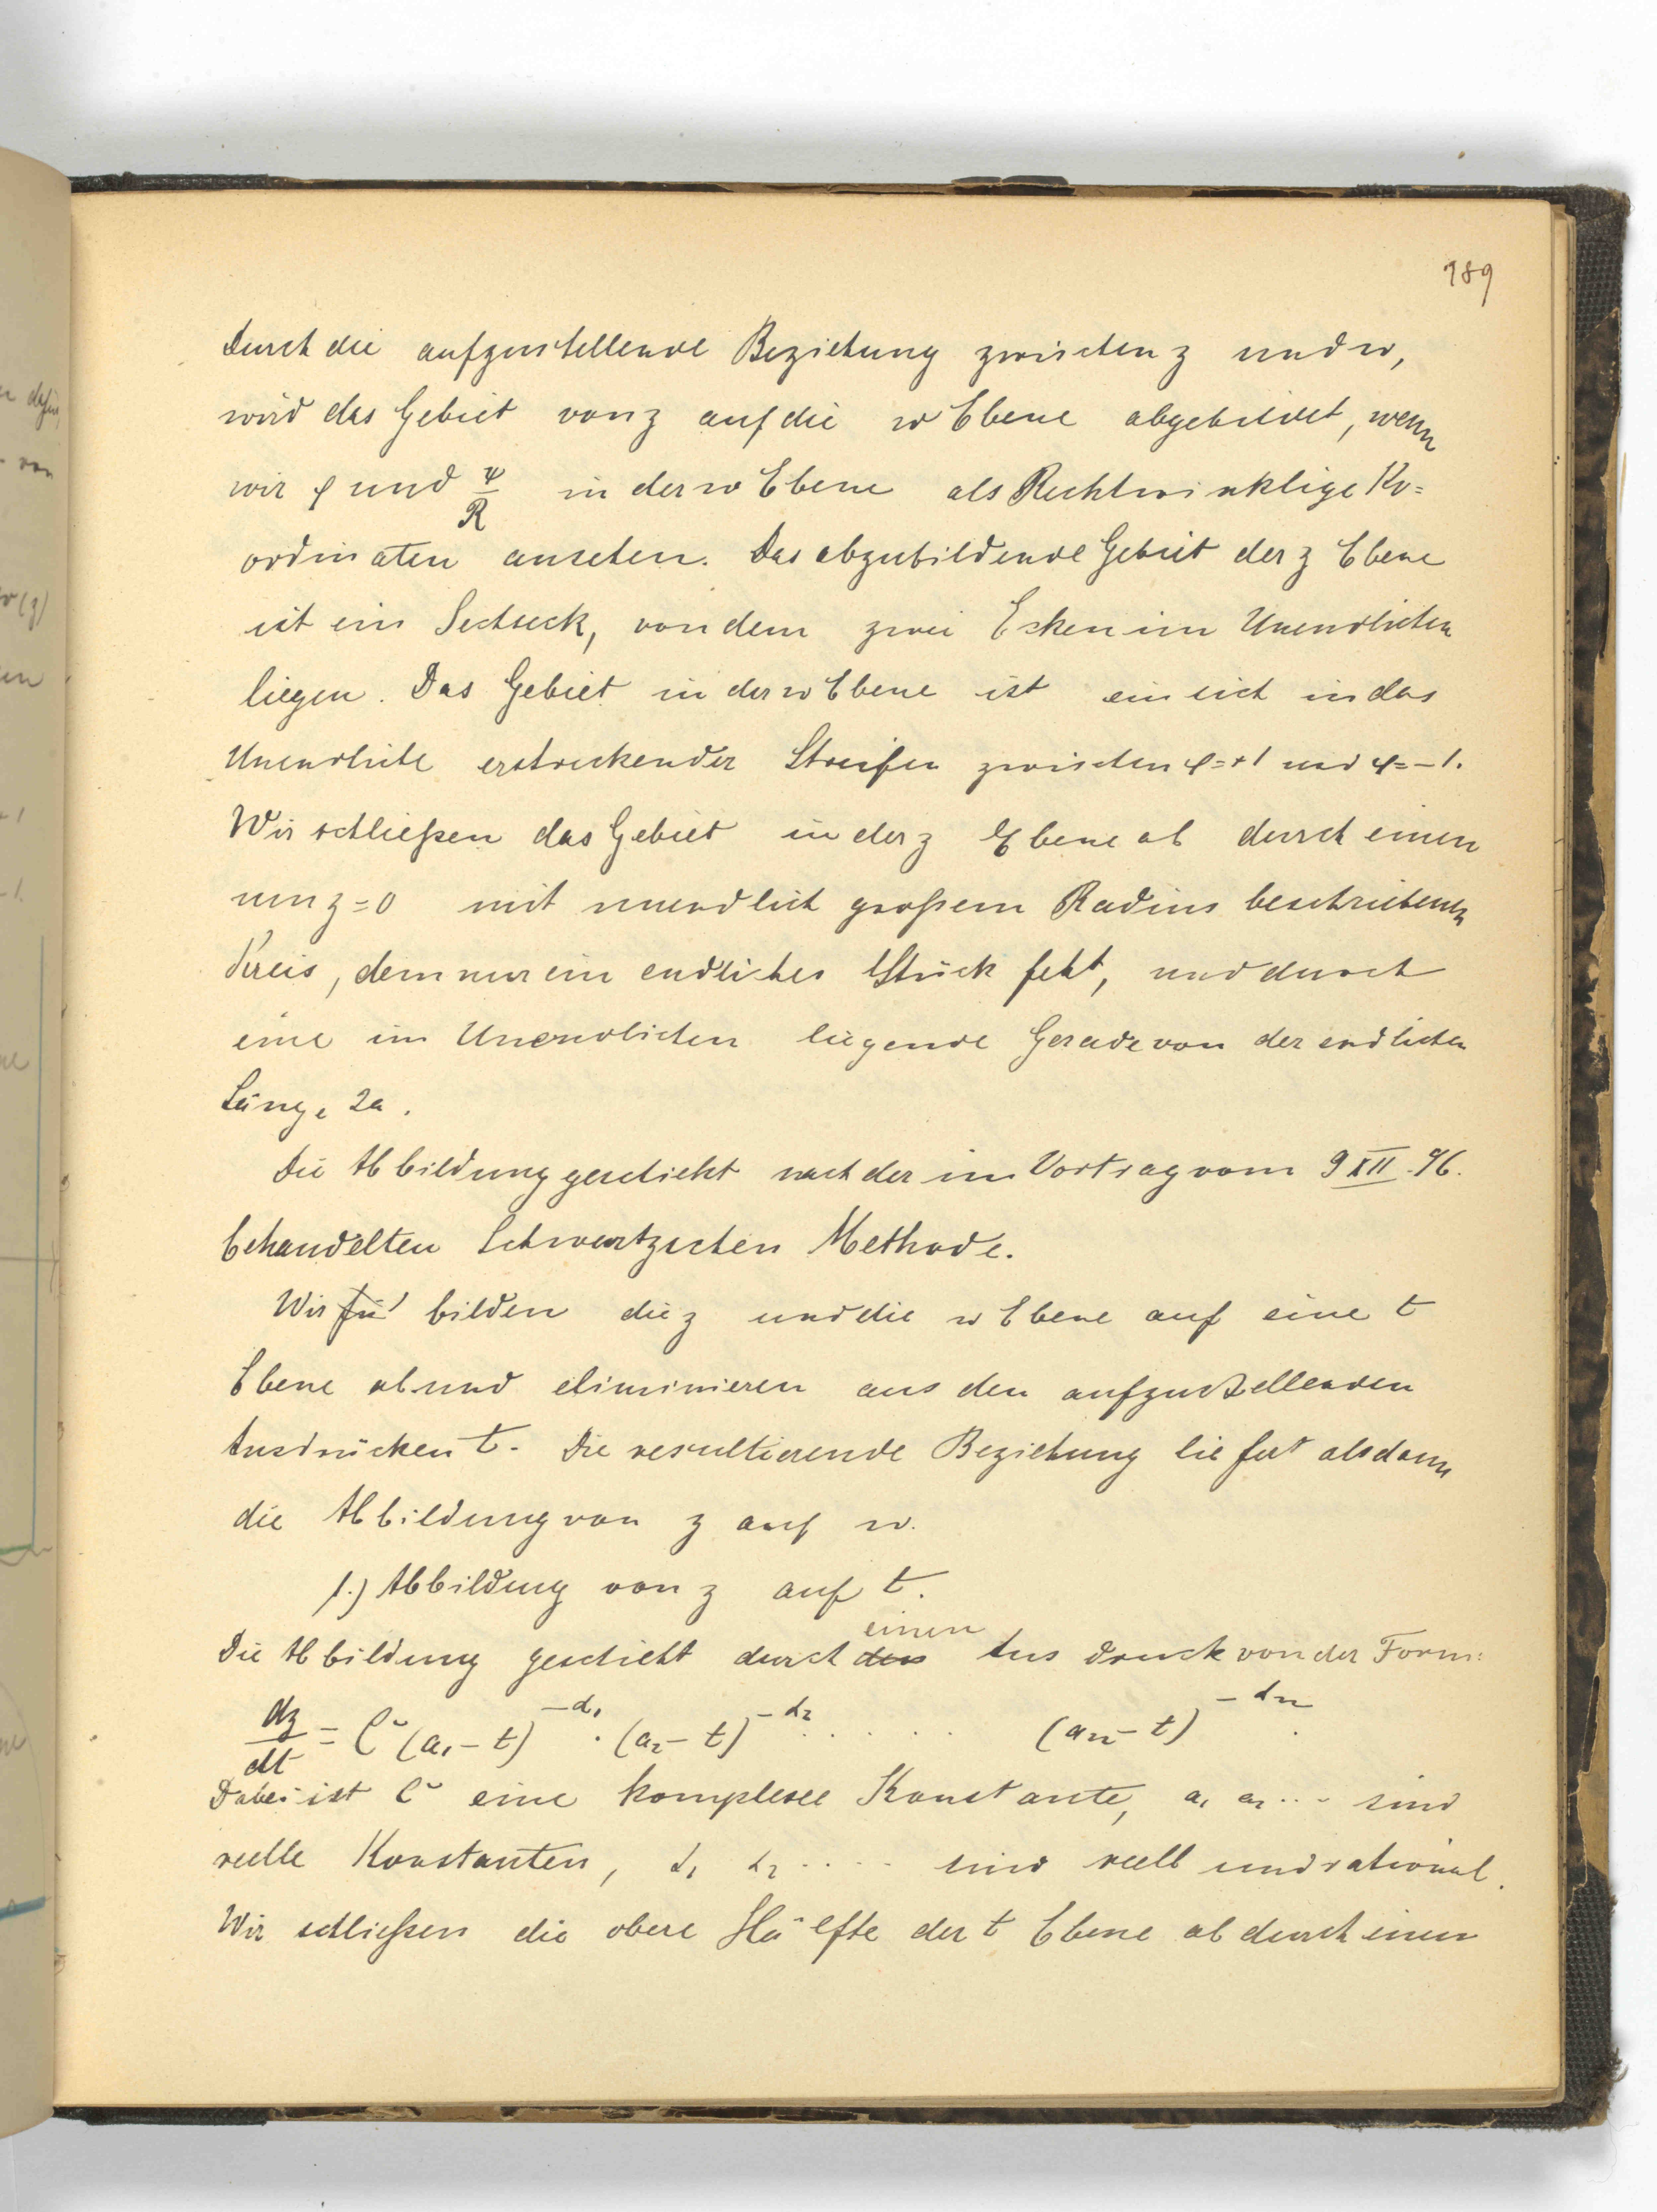 189
Durch die aufzustellende Beziehung zwischen z und w,
wird das Gebiet von z auf die w Ebene abgebildet, wenn
wir φ und ψ/R in der w Ebene als Rechtwinklige Ko=
ordinaten ansehen. Das abzubildende Gebiet der z Ebene
ist ein Sechseck, von dem zwei Ecken im Unendlichen
liegen. Das Gebiet in der w Ebene ist ein sich in das
Unendliche erstreckender Streifen zwischen φ=+1 und φ=-1.
Wir schließen das Gebiet in der z Ebene ab durch einen
um z=0 mit unendlich großem Radius beschriebenen
Kreis, dem nur ein endliches Stück fehlt, und durch
eine im Unendlichen liegende Gerade von der endlichen
Länge 2a.
Die Abbildung geschieht nach der im Vortrag vom 9 XII. 96.
behandelten Schwartzschen Methode.
Wir fü bilden die z und die w Ebene auf eine t
Ebene ab und eliminieren aus den aufzustellenden
Ausdrücken t. Die resultierende Beziehung liefert alsdann
die Abbildung von z auf w.
1.) Abbildung von z auf t.
einen
Die Abbildung geschieht durch den Ausdruck von der Form:
dz/dt = C (a₁-t)^-α₁ · (a₂-t)^-α₂ ..... (aₙ-t)^-αₙ.
Dabei ist C eine komplexe Konstante, a₁ a₂ ... sind
reelle Konstanten, α₁ α₂ .... sind reell und rational.
Wir schließen die obere Hälfte der t Ebene ab durch einen